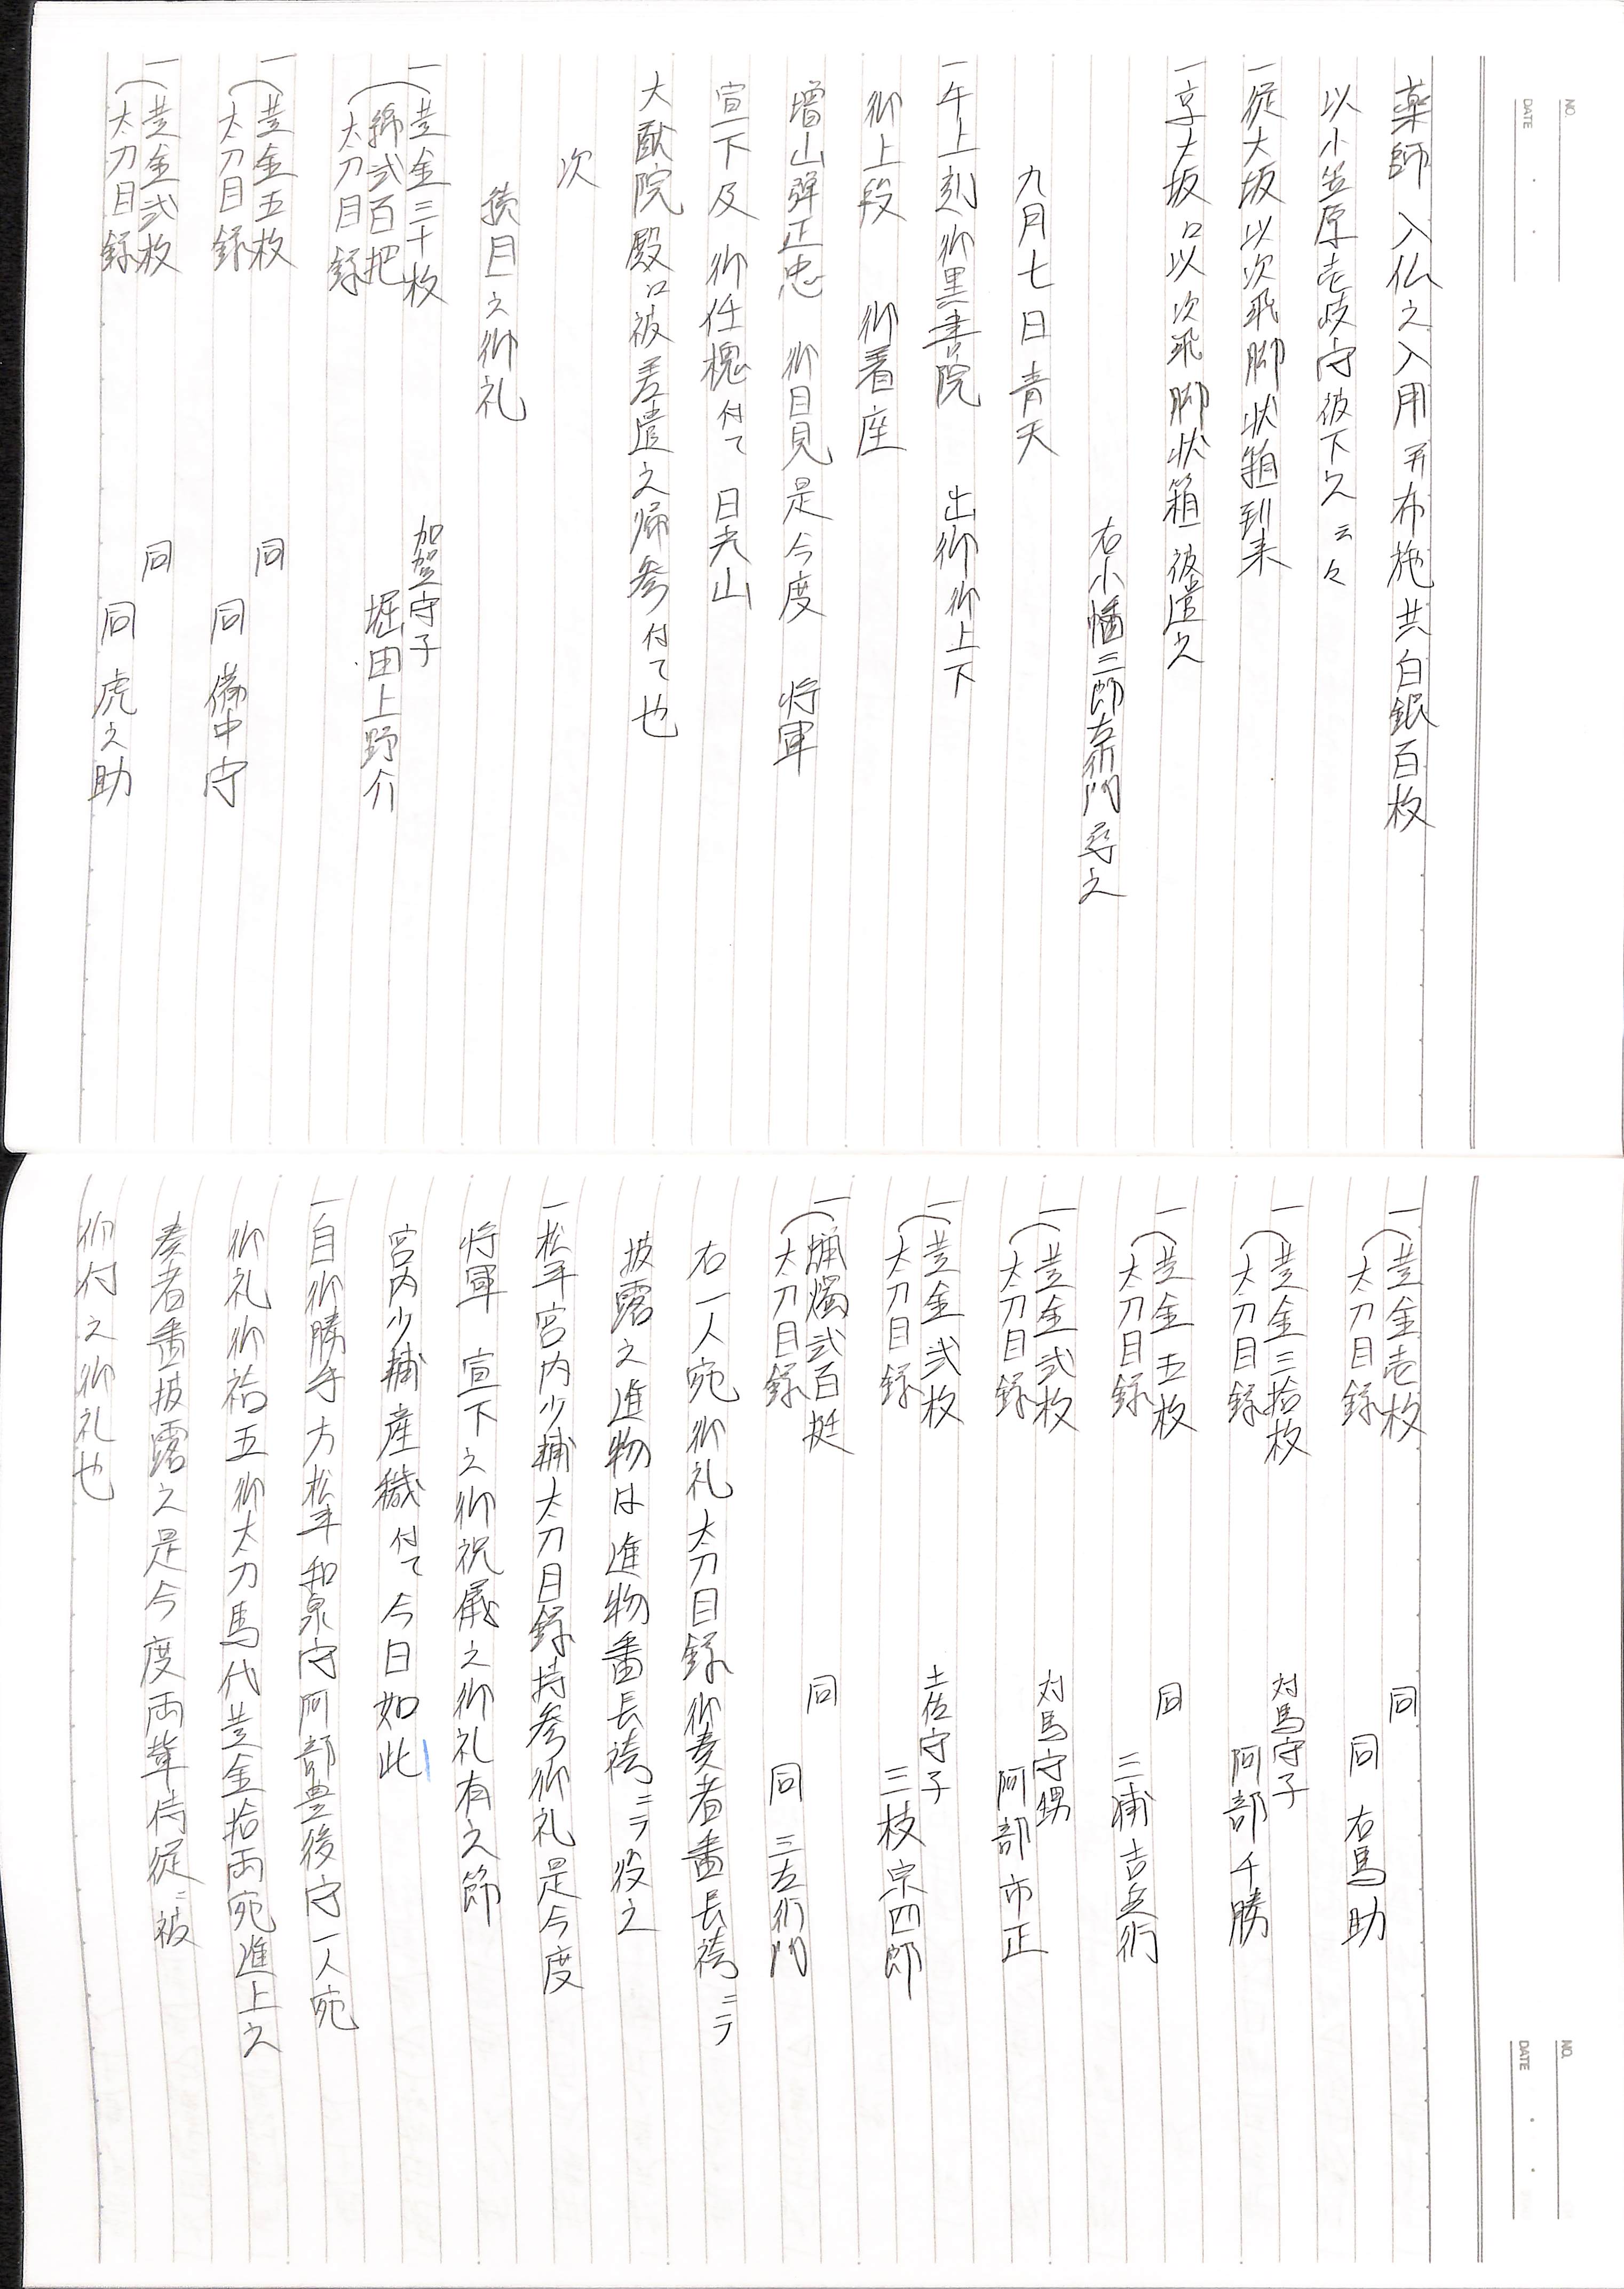 薬師 入仏之入用并布施共白銀百枚
以小笠原壱岐守被下久云々
一従大坂以次飛脚状箱到来
一京大坂口以次飛脚状箱被遣之
右小幡三郎左衛門尋之
九月七日 青天
一午上刻御黒書院 出御御上下
御上段 御着座
増山弾正忠 御目見是今度 将軍
宣下及 御任槐付て 日光山
大猷院殿口被差遣之帰参付て也
次
継目之御礼
一黄金三十枚
綿弐百把
太刀目録
加賀守子
堀田上野介
一黄金五枚
太刀目録
同
同 備中守
一黄金弐枚
太刀目録
同
同 虎之助
一黄金壱枚
太刀目録
同
同 右馬助
一黄金三拾枚
太刀目録
対馬守子
阿部千勝
一黄金五枚
太刀目録
同
三浦吉兵衛
一黄金弐枚
太刀目録
対馬守甥
阿部市正
一黄金弐枚
太刀目録
土佐守子
三枝宗四郎
一蝋燭弐百挺
太刀目録
同
同 三左衛門
右一人宛御礼太刀目録御奏者番長袴ニテ
披露之進物は進物番長袴ニテ役之
一松平宮内少輔太刀目録持参御礼是今度
将軍 宣下之御祝儀之御礼有之節
宮内少輔産穢付て今日如此
一自御勝手方松平和泉守阿部豊後守一人宛
御礼御袷五御太刀馬代黄金拾両宛進上之
奏者番披露之是今度両輩侍従ニ被
仰付之御礼也
NO.
DATE
NO.
DATE